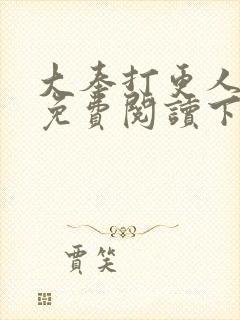 大奉打更人
免費閱讀下
賈笑